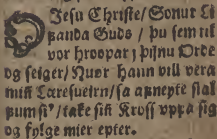 O Jesu Christe/ Sonur Li
fanda Guds / þu sem til
vor hroopar j þijnu Orde
og seiger/ Huør hann vill vera
min Læresueirn/ sa afneyte sial
fumſ?/ take sin Kross vppa sig
og fylge mier epter.